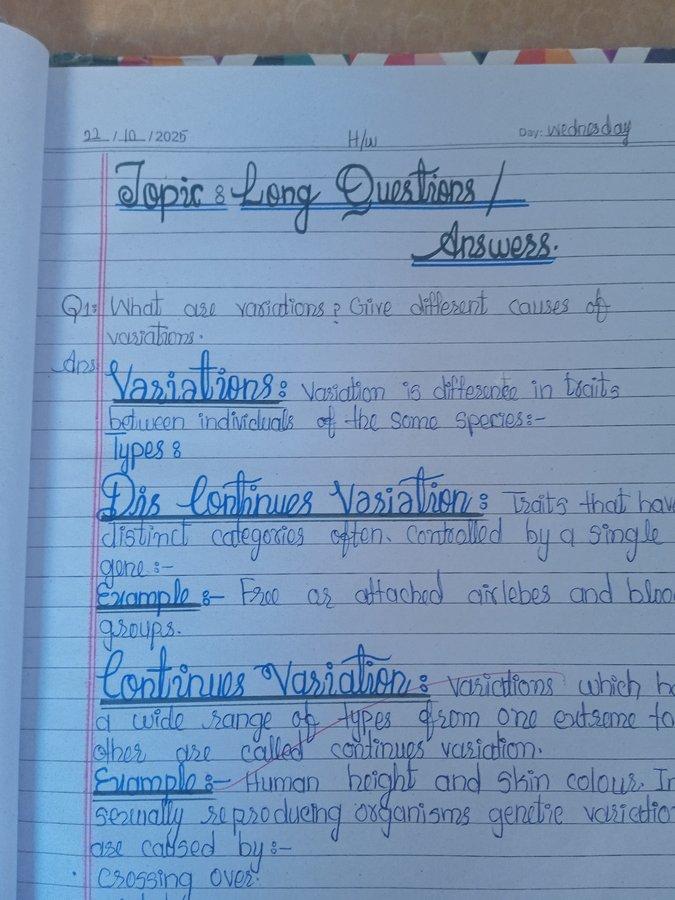 22/10/2025 H/W Day: Wednesday
Topic: Long Questions/
Answers.
Q1: What are variations? Give different causes of
variations.
Ans
Variations: Variation is difference in traits
between individuals of the same species:-
Types:
Dis Continues Variation: Traits that hav
distinct categories often. Controlled by a single
gene:-
Example:- Free or attached airlebes and bloo
groups.
Continues Variation: variations which h
a wide range of types from one extreme to
other are called continues variation.
Example:- Human height and skin colour. In
sexually reproducing organisms genetic variatio
are caused by:-
• Crossing over.